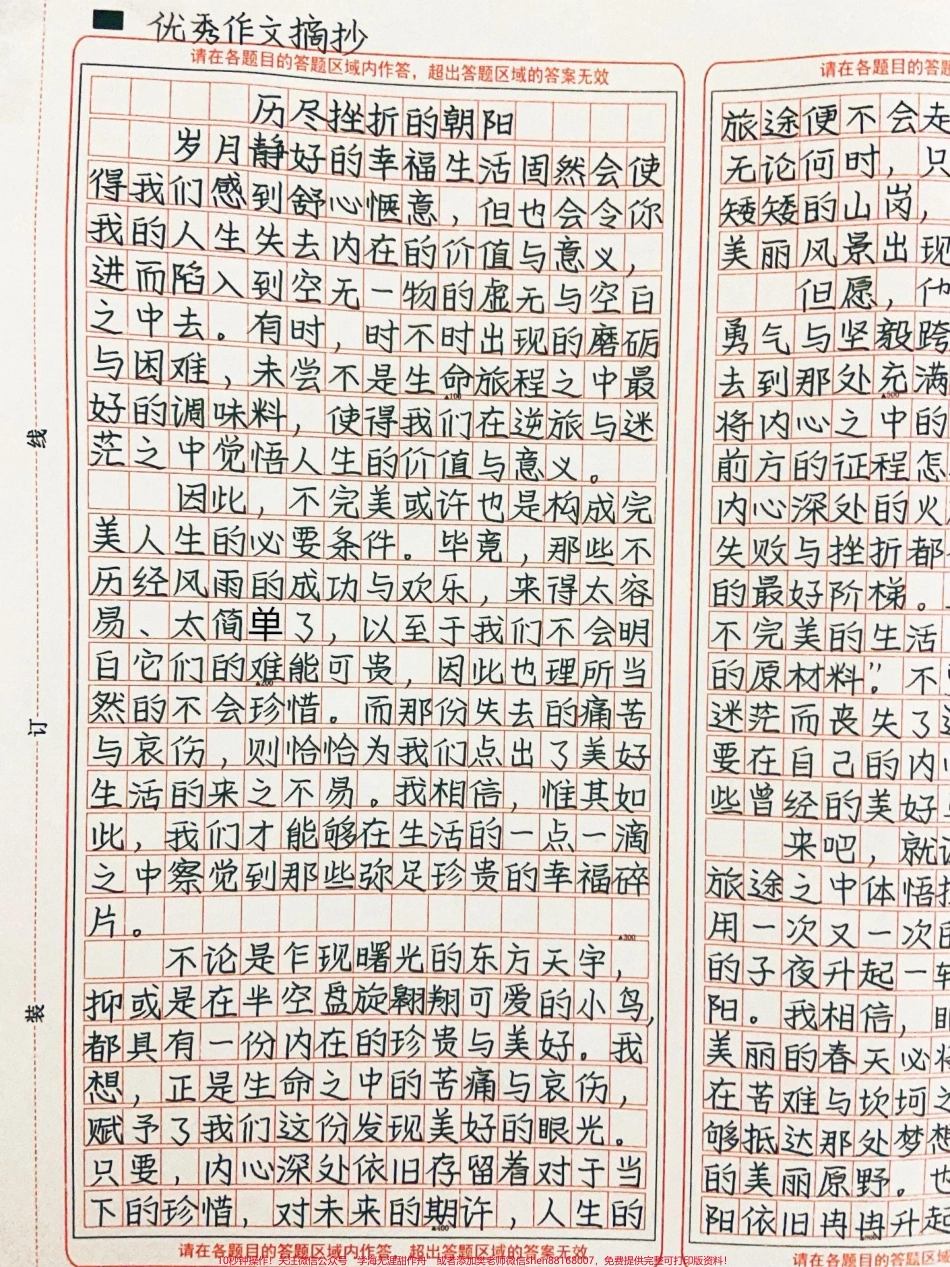 优秀作文摘抄
请在各题目的答题区域内作答，超出答题区域的答案无效
历尽挫折的朝阳
岁月静好的幸福生活固然会使
得我们感到舒心惬意，但也会令你
我的人生失去内在的价值与意义，
进而陷入到空无一物的虚无与空白
之中去。有时，时不时出现的磨砺
与困难，未尝不是生命旅程之中最
▲100
好的调味料，使得我们在逆旅与迷
茫之中觉悟人生的价值与意义。
因此，不完美或许也是构成完
美人生的必要条件。毕竟，那些不
历经风雨的成功与欢乐，来得太容
易、太简单了，以至于我们不会明
白它们的难能可贵，因此也理所当
▲200
然的不会珍惜。而那份失去的痛苦
与哀伤，则恰恰为我们点出了美好
生活的来之不易。我相信，惟其如
此，我们才能够在生活的一点一滴
之中察觉到那些弥足珍贵的幸福碎
片。
▲300
不论是乍现曙光的东方天宇，
抑或是在半空盘旋翱翔可爱的小鸟，
都具有一份内在的珍贵与美好。我
想，正是生命之中的苦痛与哀伤，
赋予了我们这份发现美好的眼光。
只要，内心深处依旧存留着对于当
下的珍惜，对未来的期许，人生的
▲400
请在各题目的答题区域内作答，超出答题区域的答案无效
请在各题目的答题
旅途便不会走
无论何时，只
矮矮的山岗，
美丽风景出现
但愿，
勇气与坚毅跨
去到那处充满
▲500
将内心之中的
前方的征程怎
内心深处的火
失败与挫折都
的最好阶梯。
不完美的生活
的原材料”。不
迷茫而丧失了
要在自己的内
些曾经的美好
来吧，就
旅途之中体悟
用一次又一次
的子夜升起一
阳。我相信，
美丽的春天必将
在苦难与坎坷之
够抵达那处梦想
的美丽原野。也
阳依旧冉冉升起
请在各题目的
线
订
装
10秒钟操作！关注微信公众号“学海无涯甜作舟”或者添加樊老师微信shen88168007，免费提供完整可打印版资料！